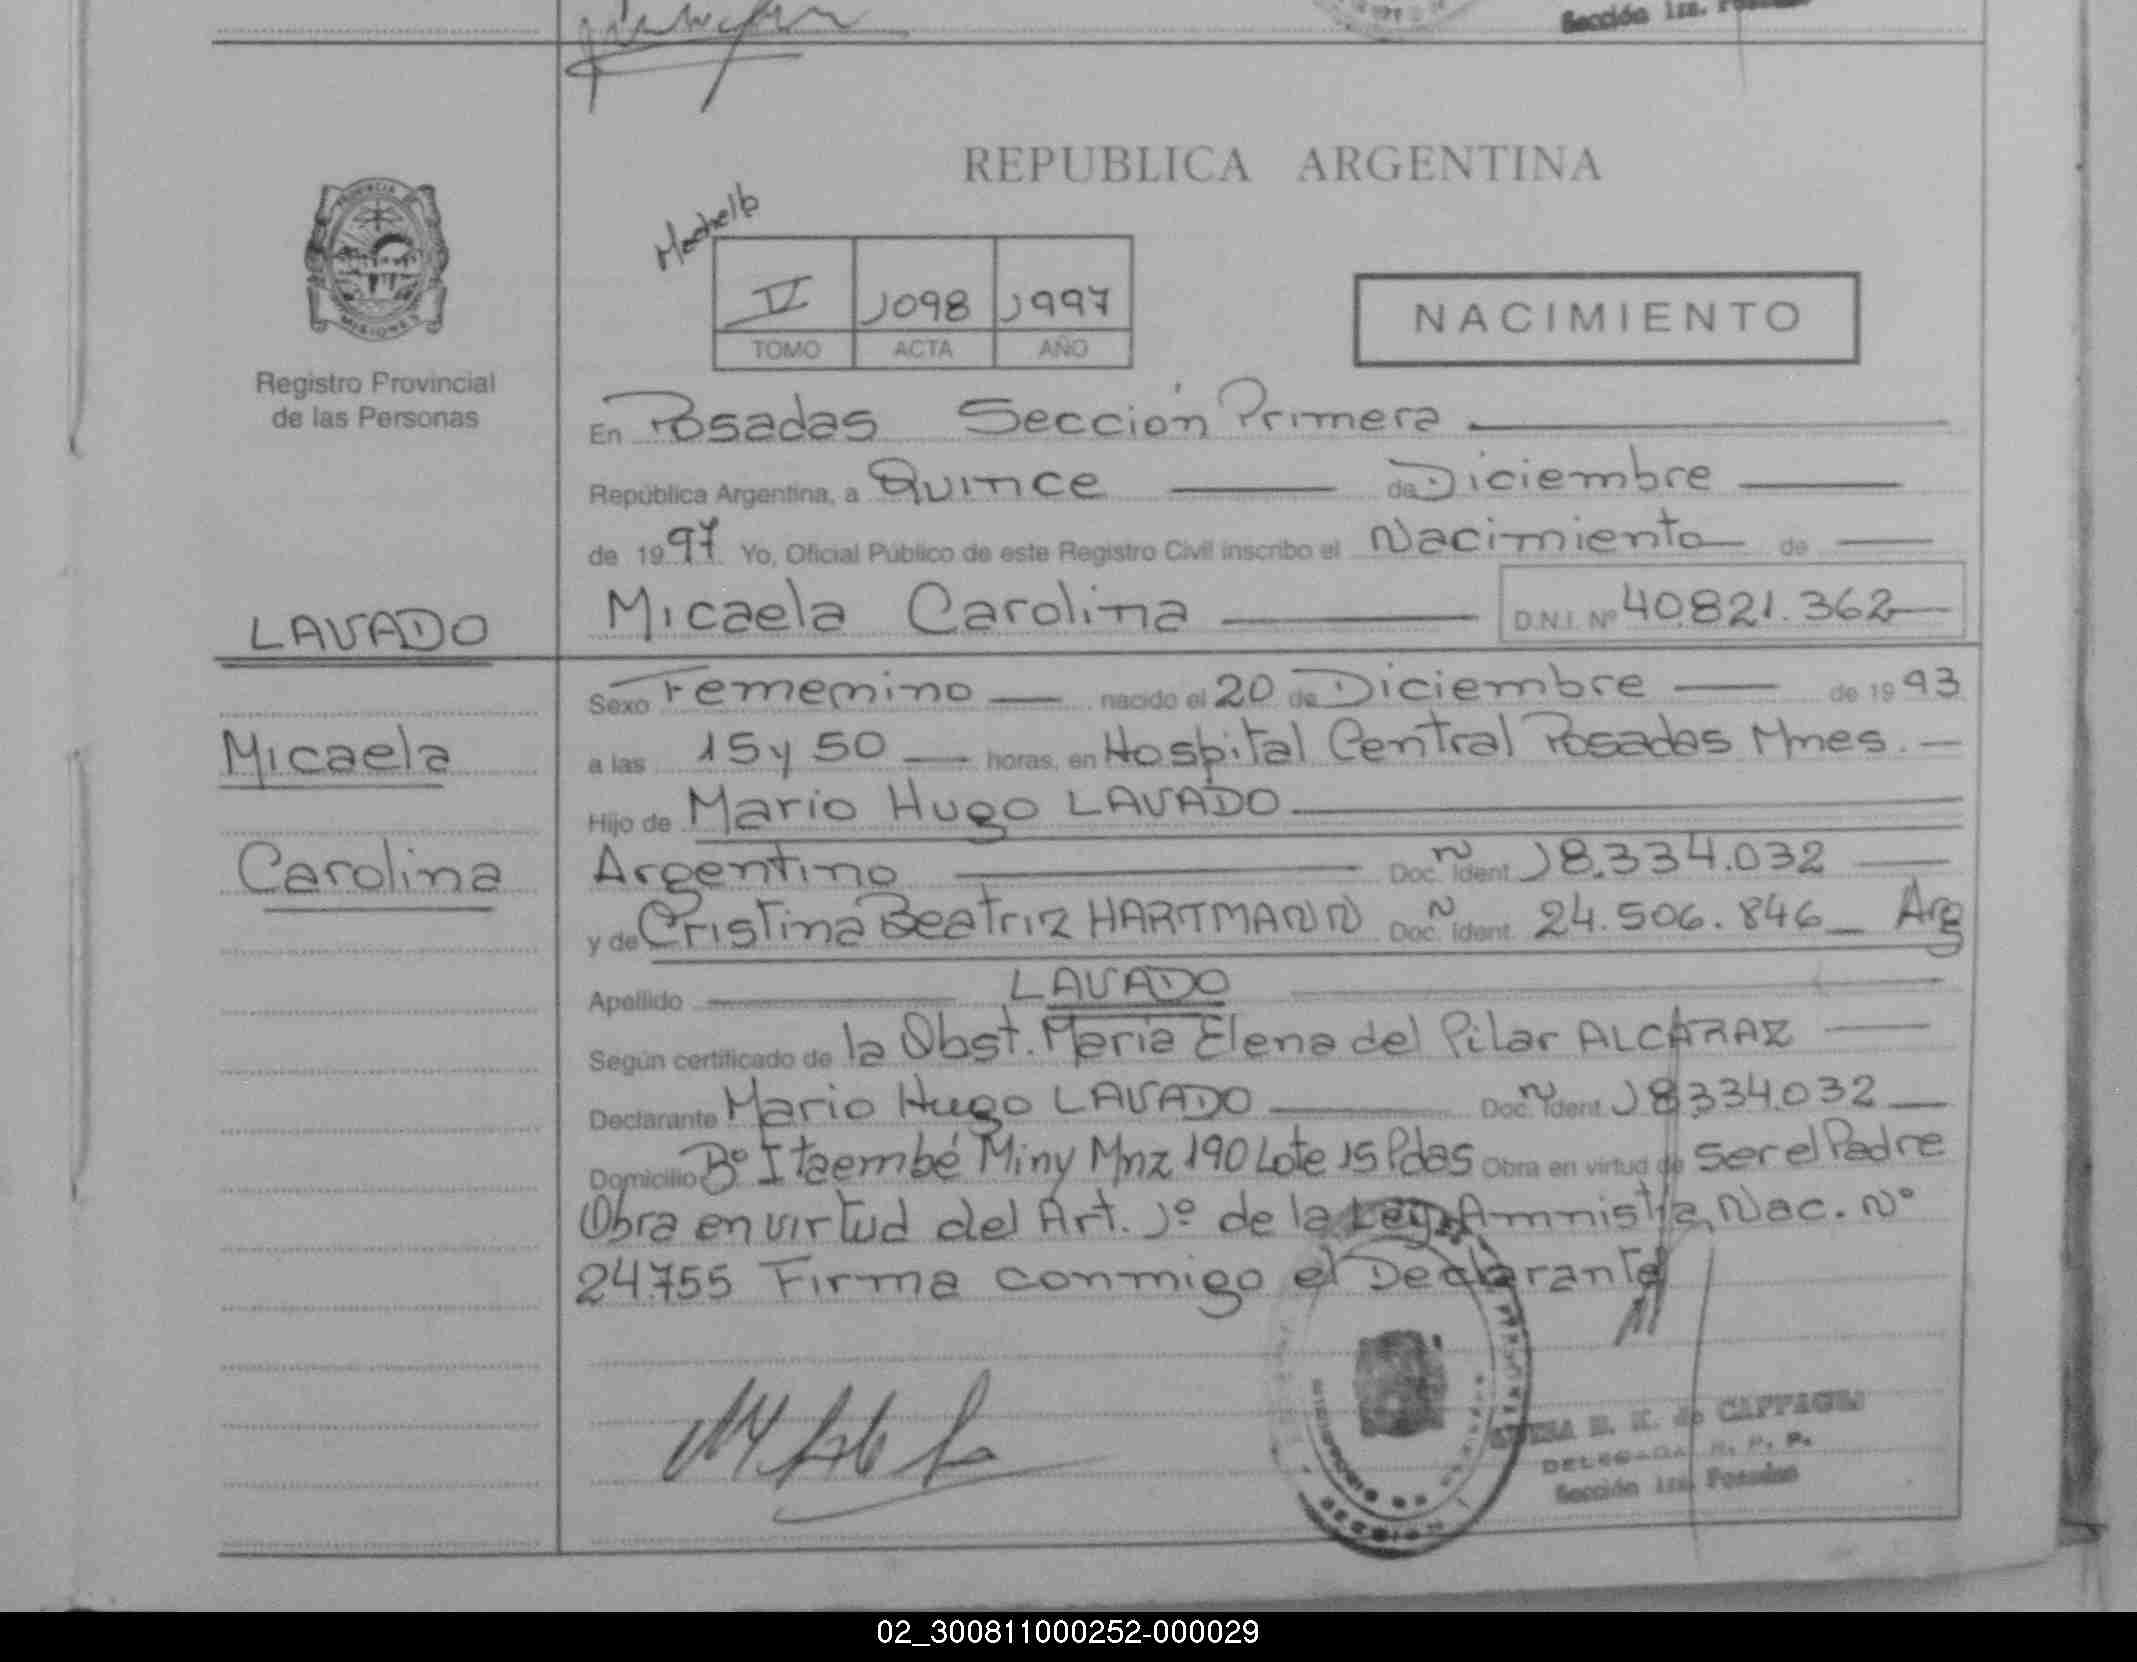 Sección 1ra. Posadas
REPUBLICA ARGENTINA
PROVINCIA
MISIONES
Registro Provincial
de las Personas
1098 1997
TOMO ACTA AÑO
NACIMIENTO
En Posadas Sección Primera
República Argentina, a Quince de Diciembre
de 1997 Yo, Oficial Público de este Registro Civil inscribo el Nacimiento de
LAVADO
Micaela Carolina D.N.I. Nº 40.821.362
Micaela
Carolina
Sexo Femenino nacido el 20 de Diciembre de 1993
a las 15 y 50 horas, en Hospital Central Posadas Mnes.
Hijo de Mario Hugo LAVADO
Argentino Doc. Ident. 18.334.032
y de Cristina Beatriz HARTMANN Doc. Ident. 24.506.846 Arg
Apellido LAVADO
Según certificado de la Obst. María Elena del Pilar ALCARAZ
Declarante Mario Hugo LAVADO Doc. Ident. 18334.032
Domicilio Bº Itaembé Miny Mnz 190 Lote 15 Pdas Obra en virtud de ser el Padre
Obra en virtud del Art. 1º de la Ley Amnistia Nac. Nº
24.755 Firma conmigo el Declarante
DELEGADA R. P. P.
Sección 1ra. Posadas
02_300811000252-000029